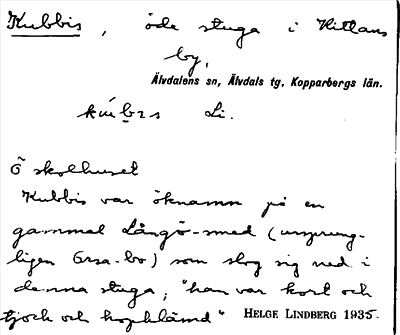 Kubbis, öde stuga i Kittans
by,
Älvdalens sn, Älvdals tg, Kopparbergs län.
Li.
Ö skolhuset
Kubbis var öknamn på en
gammal Långö-smed (ursprung-
ligen Orsa-bo) som slog sig ned i
denna stuga; "han var kort och
tjock och hopklämd" HELGE LINDBERG 1935.